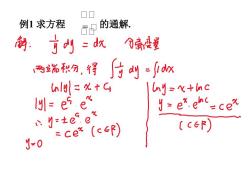 例1 求方程 的通解.
解. 1/y dy = dx 分离变量
两端积分, 得 ∫ 1/y dy = ∫ 1 dx
ln|y| = x + C₁
|y| = e^{C₁} e^x
∴ y = ± e^{C₁} e^x
= c e^x (c∈R)
y=0
ln y = x + ln c
y = e^x · e^{ln c} = c e^x
(c∈R)